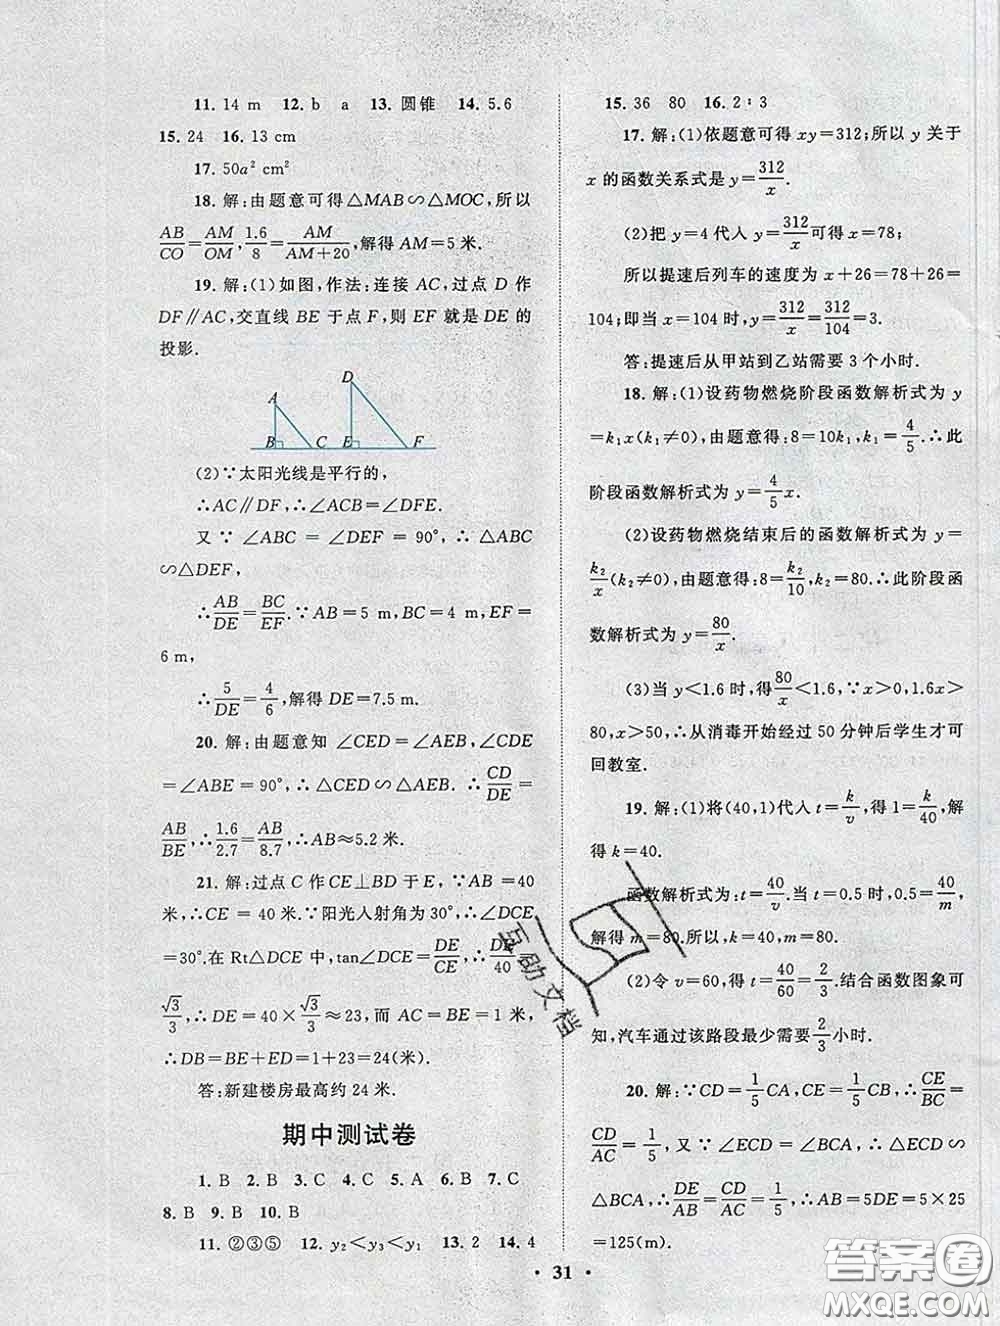 11. 14 m　12. b　a　13. 圆锥　14. 5.6
15. 24　16. 13 cm
17. 50a² cm²
18. 解:由题意可得 △MAB∽△MOC,所以
AB/CO=AM/OM,1.6/8=AM/(AM+20),解得 AM=5 米.
19. 解:(1)如图,作法:连接 AC,过点 D 作
DF∥AC,交直线 BE 于点 F,则 EF 就是 DE 的
投影.
A　D
B　C　E　F
(2)∵太阳光线是平行的,
∴AC∥DF,∴∠ACB=∠DFE.
又∵∠ABC=∠DEF=90°,∴△ABC
∽△DEF,
∴AB/DE=BC/EF.∵AB=5 m,BC=4 m,EF=
6 m,
∴5/DE=4/6,解得 DE=7.5 m.
20. 解:由题意知 ∠CED=∠AEB,∠CDE
=∠ABE=90°,∴△CED∽△AEB.∴CD/DE=
AB/BE,∴1.6/2.7=AB/8.7,∴AB≈5.2 米.
21. 解:过点 C 作 CE⊥BD 于 E,∵AB=40
米,∴CE=40 米.∵阳光入射角为 30°,∴∠DCE
=30°.在 Rt△DCE 中,tan∠DCE=DE/CE,∴DE/40=
√3/3,∴DE=40×√3/3≈23,而 AC=BE=1 米,
∴DB=BE+ED=1+23=24(米).
答:新建楼房最高约 24 米.
期中测试卷
1. B　2. B　3. C　4. C　5. A　6. B　7. C
8. B　9. B　10. B
11. ②③⑤　12. y₂<y₃<y₁　13. 2　14. 4
15. 36　80　16. 2∶3
17. 解:(1)依题意可得 xy=312;所以 y 关于
x 的函数关系式是 y=312/x.
(2)把 y=4 代入 y=312/x可得 x=78;
所以提速后列车的速度为 x+26=78+26=
104;即当 x=104 时,y=312/x=312/104=3.
答:提速后从甲站到乙站需要 3 个小时.
18. 解:(1)设药物燃烧阶段函数解析式为 y
=k₁x(k₁≠0),由题意得:8=10k₁,k₁=4/5.∴此
阶段函数解析式为 y=4/5x.
(2)设药物燃烧结束后的函数解析式为 y=
k₂/x(k₂≠0),由题意得:8=k₂/10,k₂=80.∴此阶段函
数解析式为 y=80/x.
(3)当 y<1.6 时,得80/x<1.6,∵x>0,1.6x>
80,x>50,∴从消毒开始经过 50 分钟后学生才可
回教室.
19. 解:(1)将(40,1)代入 t=k/v,得 1=k/40,解
得 k=40.
函数解析式为:t=40/v.当 t=0.5 时,0.5=40/m,
解得 m=80.所以,k=40,m=80.
(2)令 v=60,得 t=40/60=2/3.结合函数图象可
知,汽车通过该路段最少需要2/3小时.
20. 解:∵CD=1/5CA,CE=1/5CB,∴CE/BC=
CD/AC=1/5,又∵∠ECD=∠BCA,∴△ECD∽
△BCA,∴DE/AB=CD/AC=1/5,∴AB=5DE=5×25
=125(m).
• 31 •
互助文档
答案圈
MXQE.COM